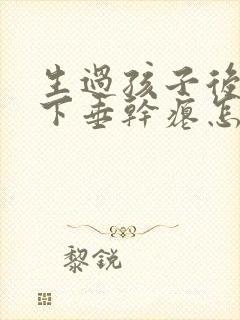 生過孩子後
下垂幹瘪怎
黎銳